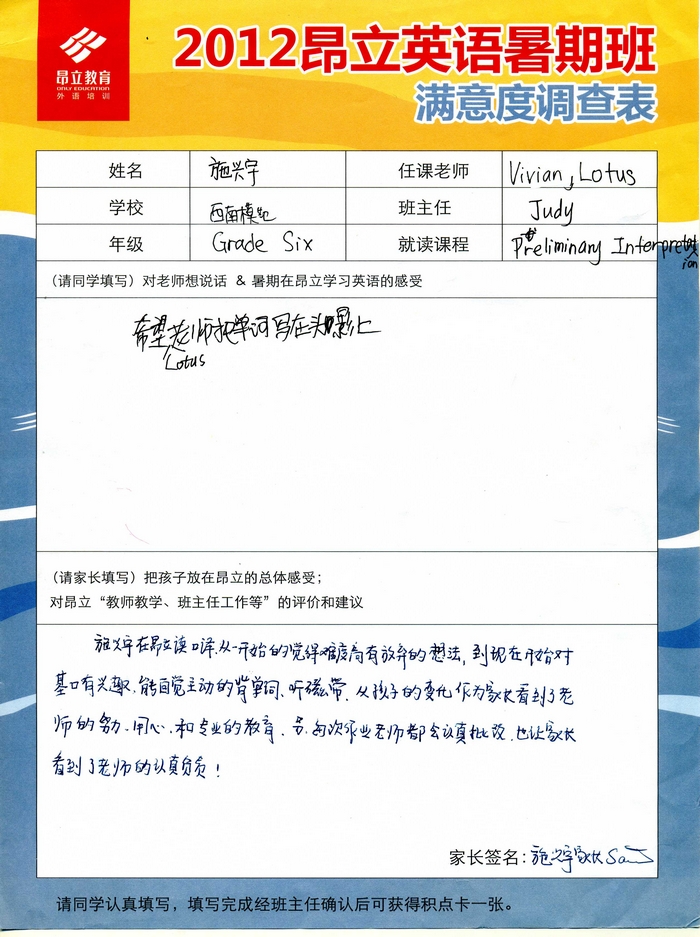 昂立教育
ONLY EDUCATION
外语培训
2012昂立英语暑期班
满意度调查表
姓名 施兴宇 任课老师 Vivian, Lotus
学校 西南模范 班主任 Judy
年级 Grade Six 就读课程 Preliminary Interpretation
(请同学填写) 对老师想说话 & 暑期在昂立学习英语的感受
希望老师把单词写在头
Lotus
(请家长填写) 把孩子放在昂立的总体感受;
对昂立“教师教学、班主任工作等”的评价和建议
施兴宇在昂立读口译,从一开始的觉得难度高有放弃的想法,到现在开始对
基口有兴趣,能自觉主动的背单词、听磁带,从孩子的变化作为家长看到了老
师的努、用心、和专业的教育、另,每次作业老师都会认真批改,也让家长
看到了老师的认真负责!
家长签名: 施兴宇家长
请同学认真填写,填写完成经班主任确认后可获得积点卡一张。